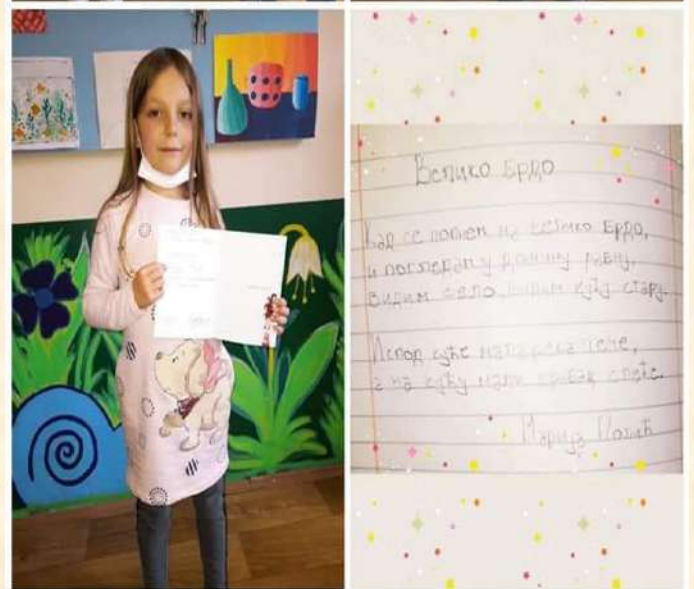 Велико брдо
Кад се попнем на велико брдо,
и погледам у долину равну,
видим село, видим кућу стару.
Испод куће мала река тече,
а на кућу мали врабац слеће.
Марија